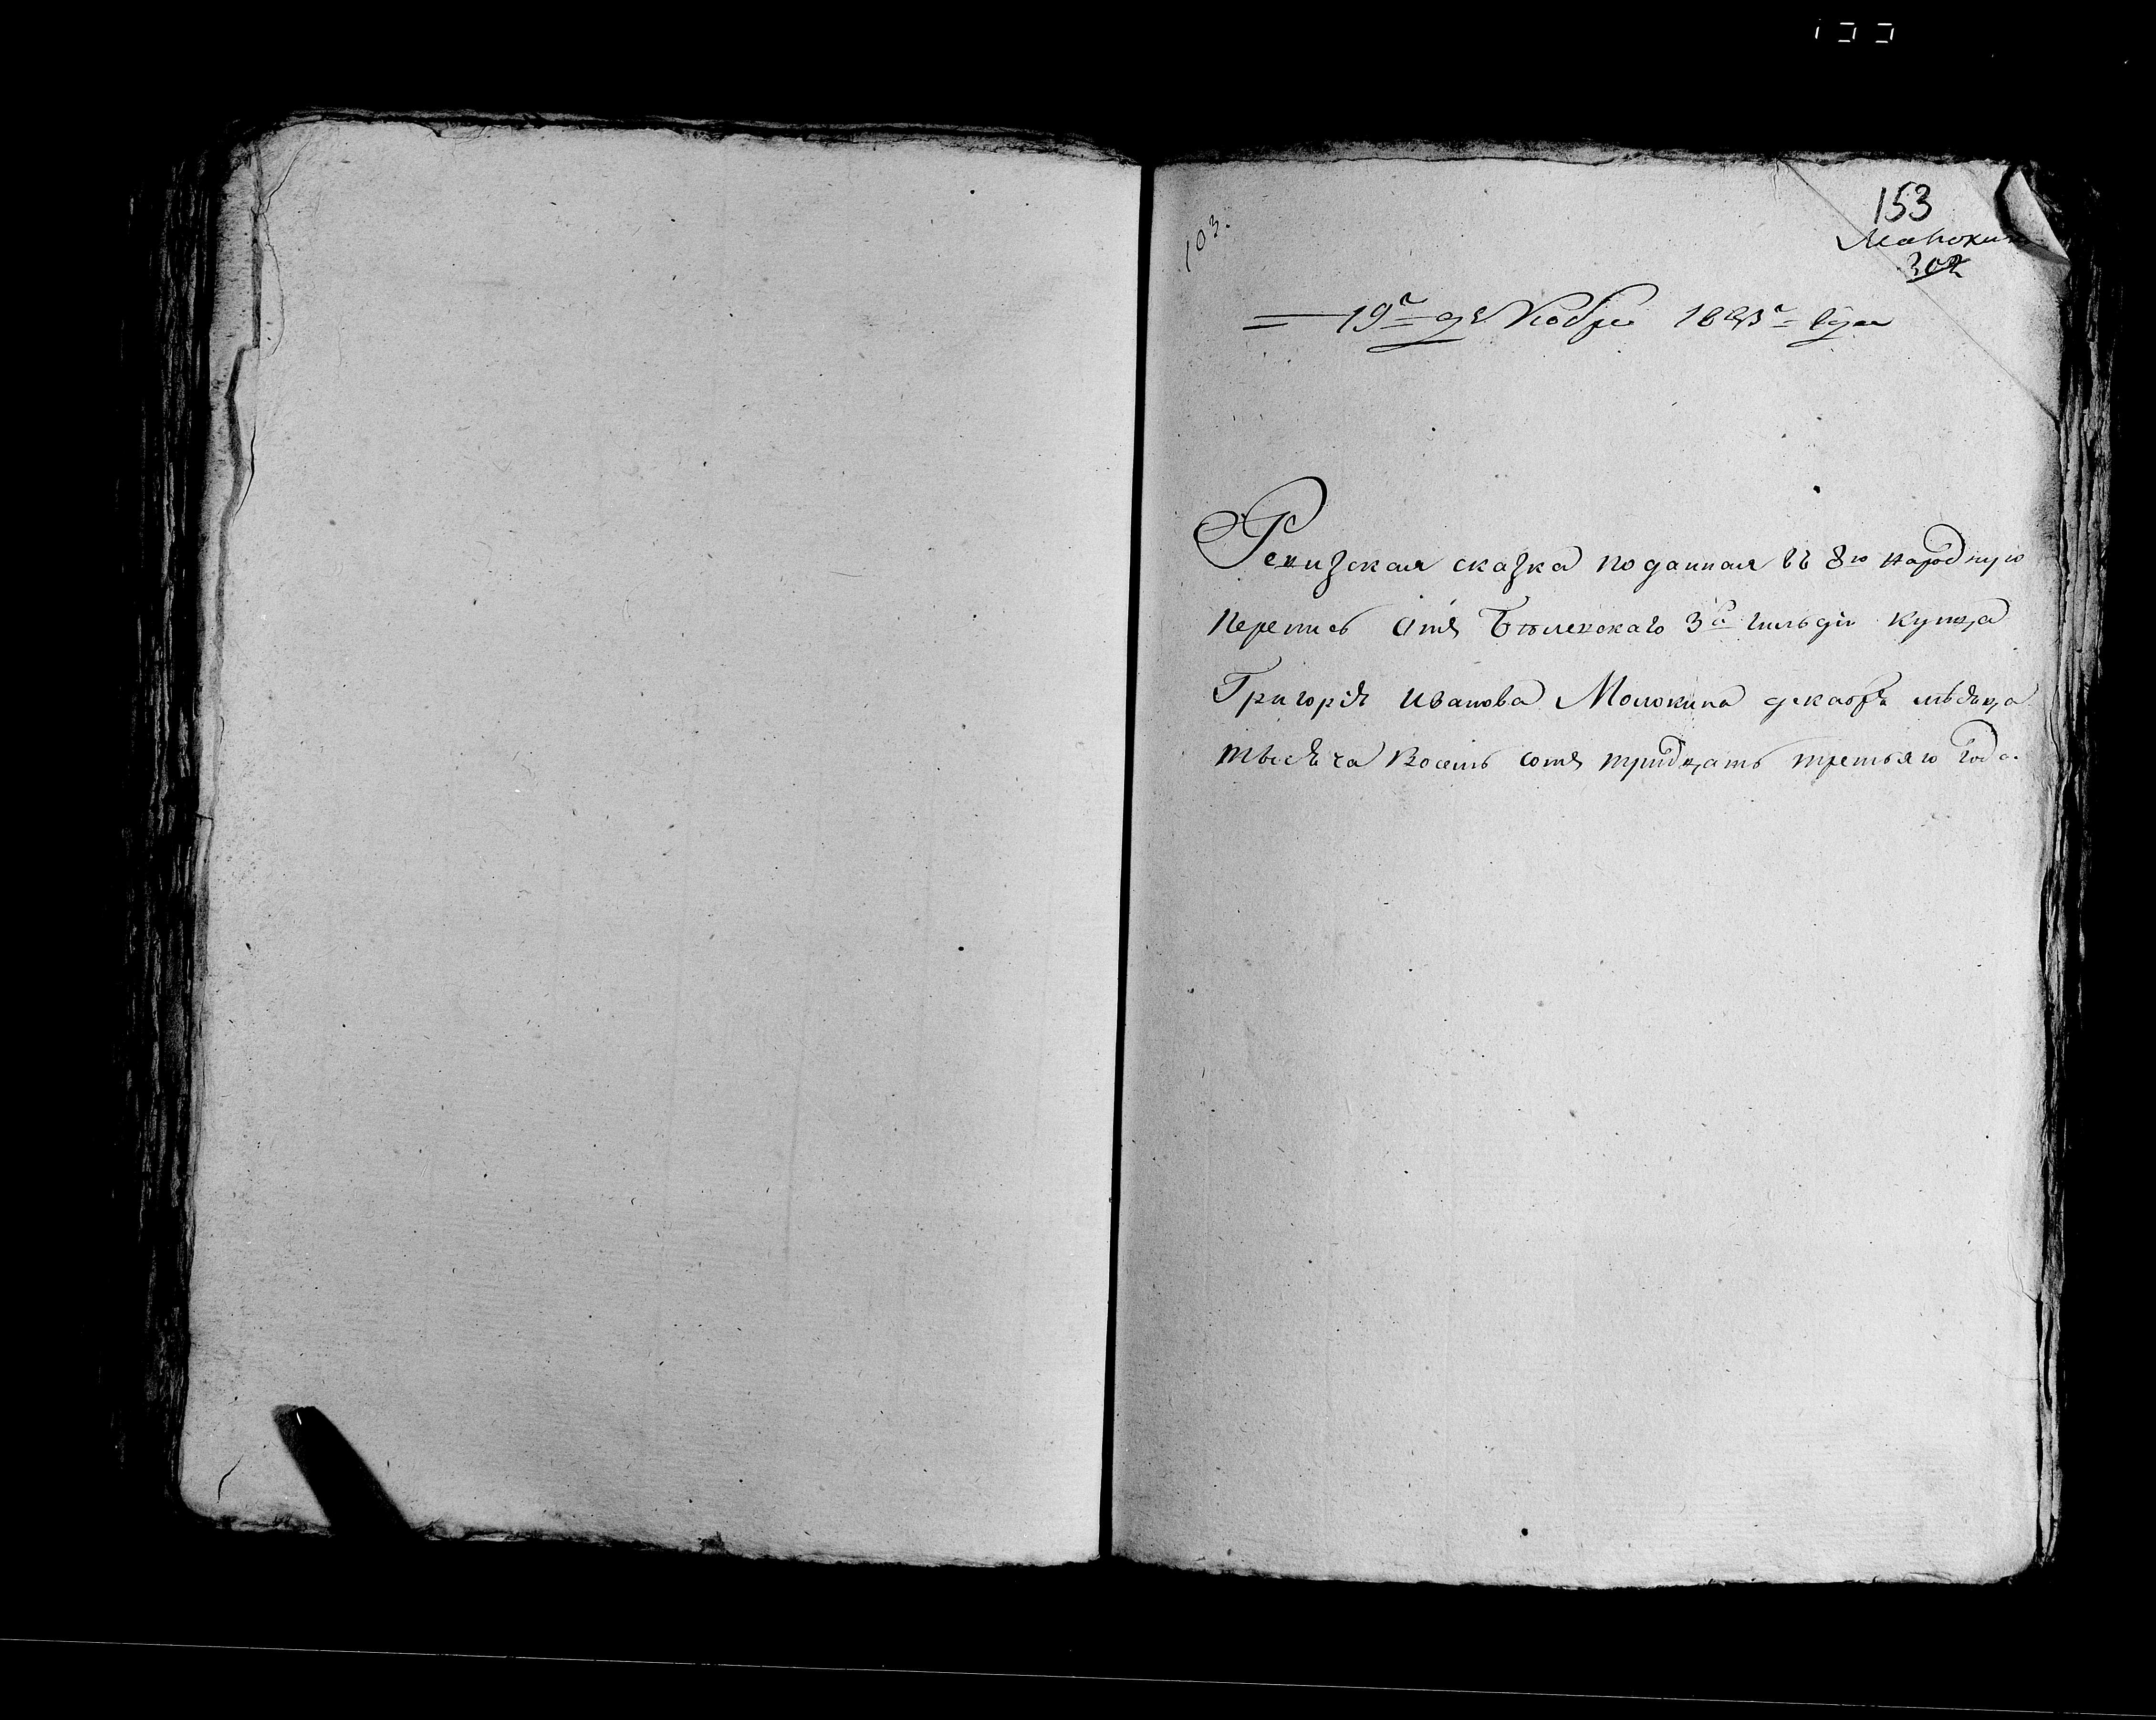 153
103.
302
19го декабря 1833го года
Ревизская сказка поданная въ 8ю народную
перепись отъ Бѣлевскаго 3й гильдіи купца
Григорія Иванова Молокина декабря мѣсяца
тысяча восемь сотъ тридцать третьяго года.